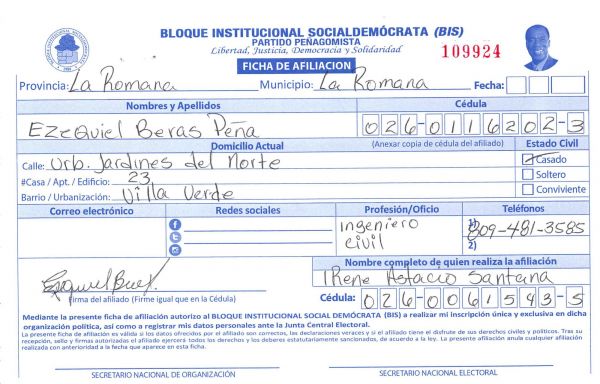 BLOQUE INSTITUCIONAL SOCIALDEMÓCRATA (BIS)
PARTIDO PEÑAGOMISTA
Libertad, Justicia, Democracia y Solidaridad
109924
FICHA DE AFILIACION
Provincia: La Romana Municipio: La Romana Fecha:
Nombres y Apellidos Cédula
Ezequiel Beras Peña 026-0116202-3
Domicilio Actual (Anexar copia de cédula del afiliado) Estado Civil
Calle: Urb. Jardines del Norte Casado
#Casa / Apt. / Edificio: 23 Soltero
Barrio / Urbanización: Villa Verde Conviviente
Correo electrónico Redes sociales Profesión/Oficio Teléfonos
ingeniero civil 1) 809-481-3585
2)
Nombre completo de quien realiza la afiliación
Irene Astacio Santana
Firma del afiliado (Firme igual que en la Cédula) Cédula: 026-0061543-5
Mediante la presente ficha de afiliación autorizo al BLOQUE INSTITUCIONAL SOCIAL DEMÓCRATA (BIS) a realizar mi inscripción única y exclusiva en dicha
organización política, así como a registrar mis datos personales ante la Junta Central Electoral.
La presente ficha de afiliación es válida si los datos ofrecidos por el afiliado son correctos, las declaraciones veraces y si el titular tiene el disfrute de sus derechos civiles y políticos. Tras su
recepción, sello y firmas autorizadas el afiliado ejercerá todos los derechos y los deberes estatutariamente sancionados, de acuerdo a la ley. La presente afiliación anula cualquier afiliación
realizada con anterioridad a la fecha que aparece en esta ficha.
SECRETARIO NACIONAL DE ORGANIZACIÓN SECRETARIO NACIONAL ELECTORAL